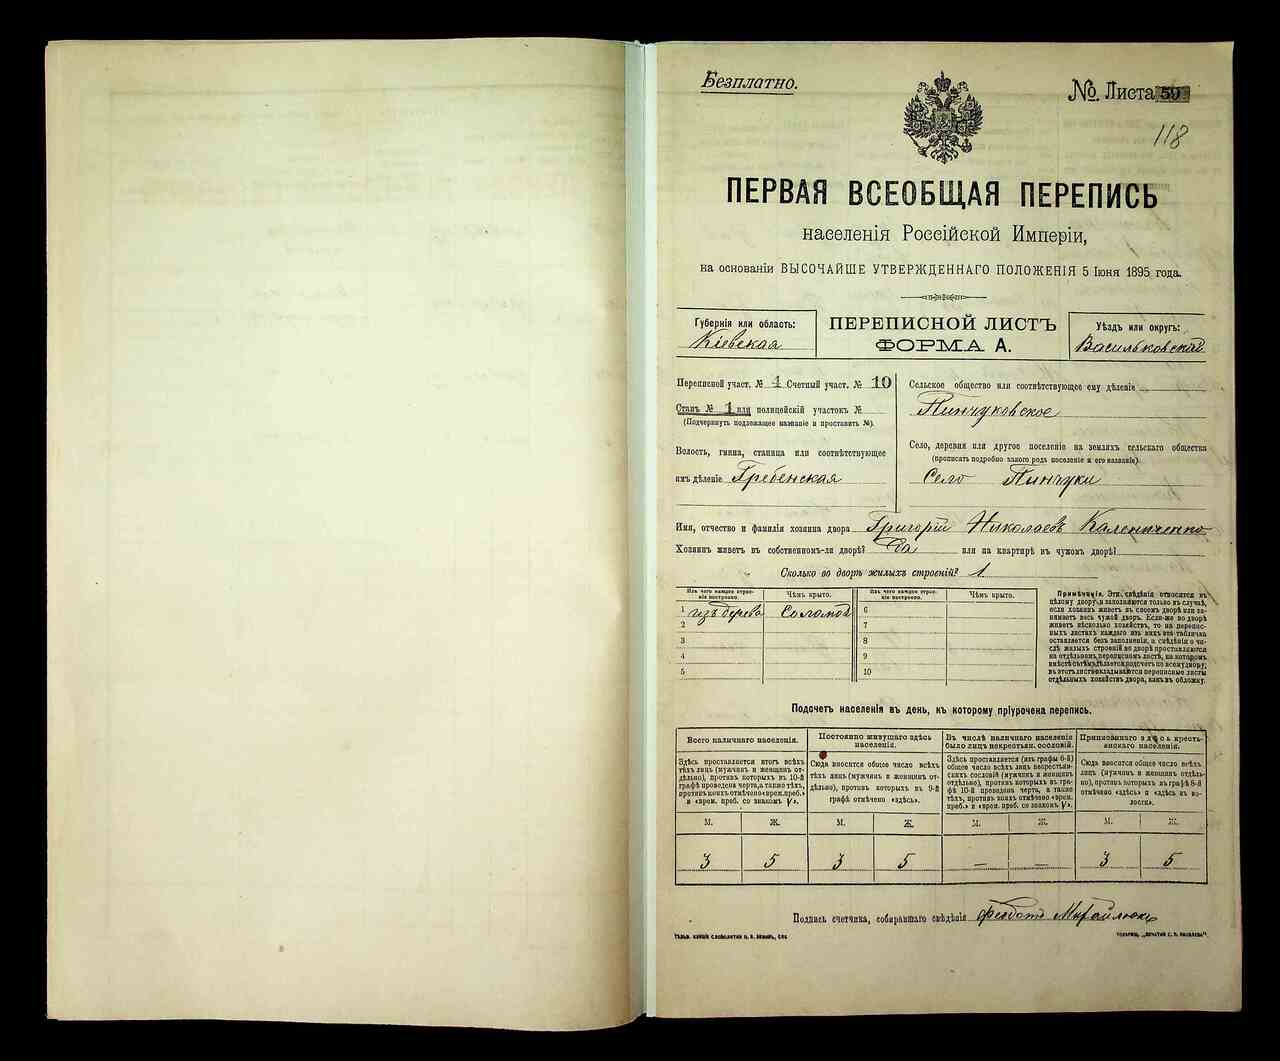 Безплатно.
№ Листа 59
118
ПЕРВАЯ ВСЕОБЩАЯ ПЕРЕПИСЬ
населенія Россійской Имперіи,
на основаніи ВЫСОЧАЙШЕ УТВЕРЖДЕННАГО ПОЛОЖЕНІЯ 5 Іюня 1895 года.
Губернія или область:
Кіевская
ПЕРЕПИСНОЙ ЛИСТЪ
ФОРМА А.
Уѣздъ или округъ:
Васильковскій
Переписной участ. № 1 Счетный участ. № 10
Станъ № 1 или полицейскій участокъ №
(Подчеркнуть подлежащее названіе и проставить №).
Волость, гмина, станица или соотвѣтствующее
имъ дѣленіе Гребенская
Сельское общество или соотвѣтствующее ему дѣленіе
Пинчуковское
Село, деревня или другое поселеніе на земляхъ сельскаго общества
(прописать подробно какого рода поселеніе и его названіе).
Село Пинчуки
Имя, отчество и фамилія хозяина двора Григорій Николаевъ Калениченко
Хозяинъ живетъ въ собственномъ-ли дворѣ? Да или на квартирѣ въ чужомъ дворѣ?
Сколько во дворѣ жилыхъ строеній? 1.
Изъ чего каждое строеніе построено.
Чѣмъ крыто.
Изъ чего каждое строеніе построено.
Чѣмъ крыто.
1 изъ дерева соломой 6
2 7
3 8
4 9
5 10
Примѣчанія. Эти свѣдѣнія относятся къ
цѣлому двору и заполняются только въ случаѣ,
если хозяинъ живетъ въ своемъ дворѣ или за-
нимаетъ весь чужой дворъ. Если-же во дворѣ
живетъ нѣсколько хозяйствъ, то на перепис-
ныхъ листахъ каждаго изъ нихъ эта табличка
остается безъ заполненія, а свѣдѣнія о чи-
слѣ жилыхъ строеній во дворѣ проставляются
на отдѣльномъ переписномъ листѣ, на которомъ
вмѣстѣ съ тѣмъ дѣлается подсчетъ по всему двору;
въ этотъ листъ вкладываются переписные листы
отдѣльныхъ хозяйствъ двора, какъ въ обложку.
Подсчетъ населенія въ день, къ которому пріурочена перепись.
Всего наличнаго населенія.
Здѣсь проставляется итогъ всѣхъ
тѣхъ лицъ (мужчинъ и женщинъ от-
дѣльно), противъ которыхъ въ 10-й
графѣ проведена черта, а также тѣхъ,
противъ коихъ отмѣчено «врем. преб.»
и «врем. преб. со знакомъ V».
Постоянно живущаго здѣсь
населенія.
Сюда вносится общее число всѣхъ
тѣхъ лицъ (мужчинъ и женщинъ от-
дѣльно), противъ которыхъ въ 9-й
графѣ отмѣчено «здѣсь».
Въ числѣ наличнаго населенія
было лицъ некрестьян. сословій.
Здѣсь проставляется (изъ графы 6-й)
общее число всѣхъ лицъ некрестьян-
скихъ сословій (мужчинъ и женщинъ
отдѣльно), противъ которыхъ въ гра-
фѣ 10-й проведена черта, а также
тѣхъ, противъ коихъ отмѣчено «врем.
преб.» и «врем. преб. со знакомъ V».
Приписаннаго здѣсь кресть-
янскаго населенія.
Сюда вносится общее число всѣхъ
лицъ (мужчинъ и женщинъ отдѣль-
но), противъ которыхъ въ графѣ 8-й
отмѣчено «здѣсь» и «здѣсь въ во-
лости».
М. Ж. М. Ж. М. Ж. М. Ж.
3 5 3 5 — — 3 5
Подпись счетчика, собиравшаго свѣдѣнія Феодотъ Михайлюкъ